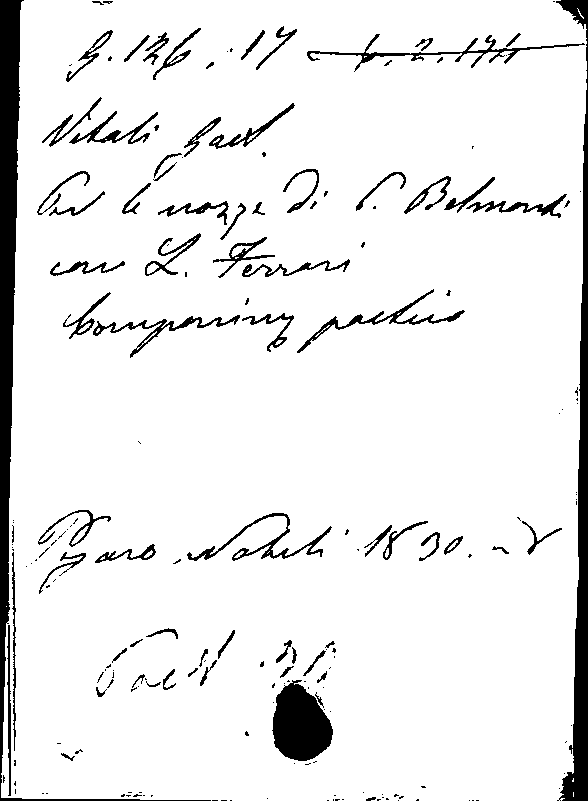 G. 126. 17 6. 2. 174
Vitali Gaet.
Per le nozze di P. Belmonti
con L. Ferrari
Componim poetico
Pesaro Nobili 1830. - 8
Poet